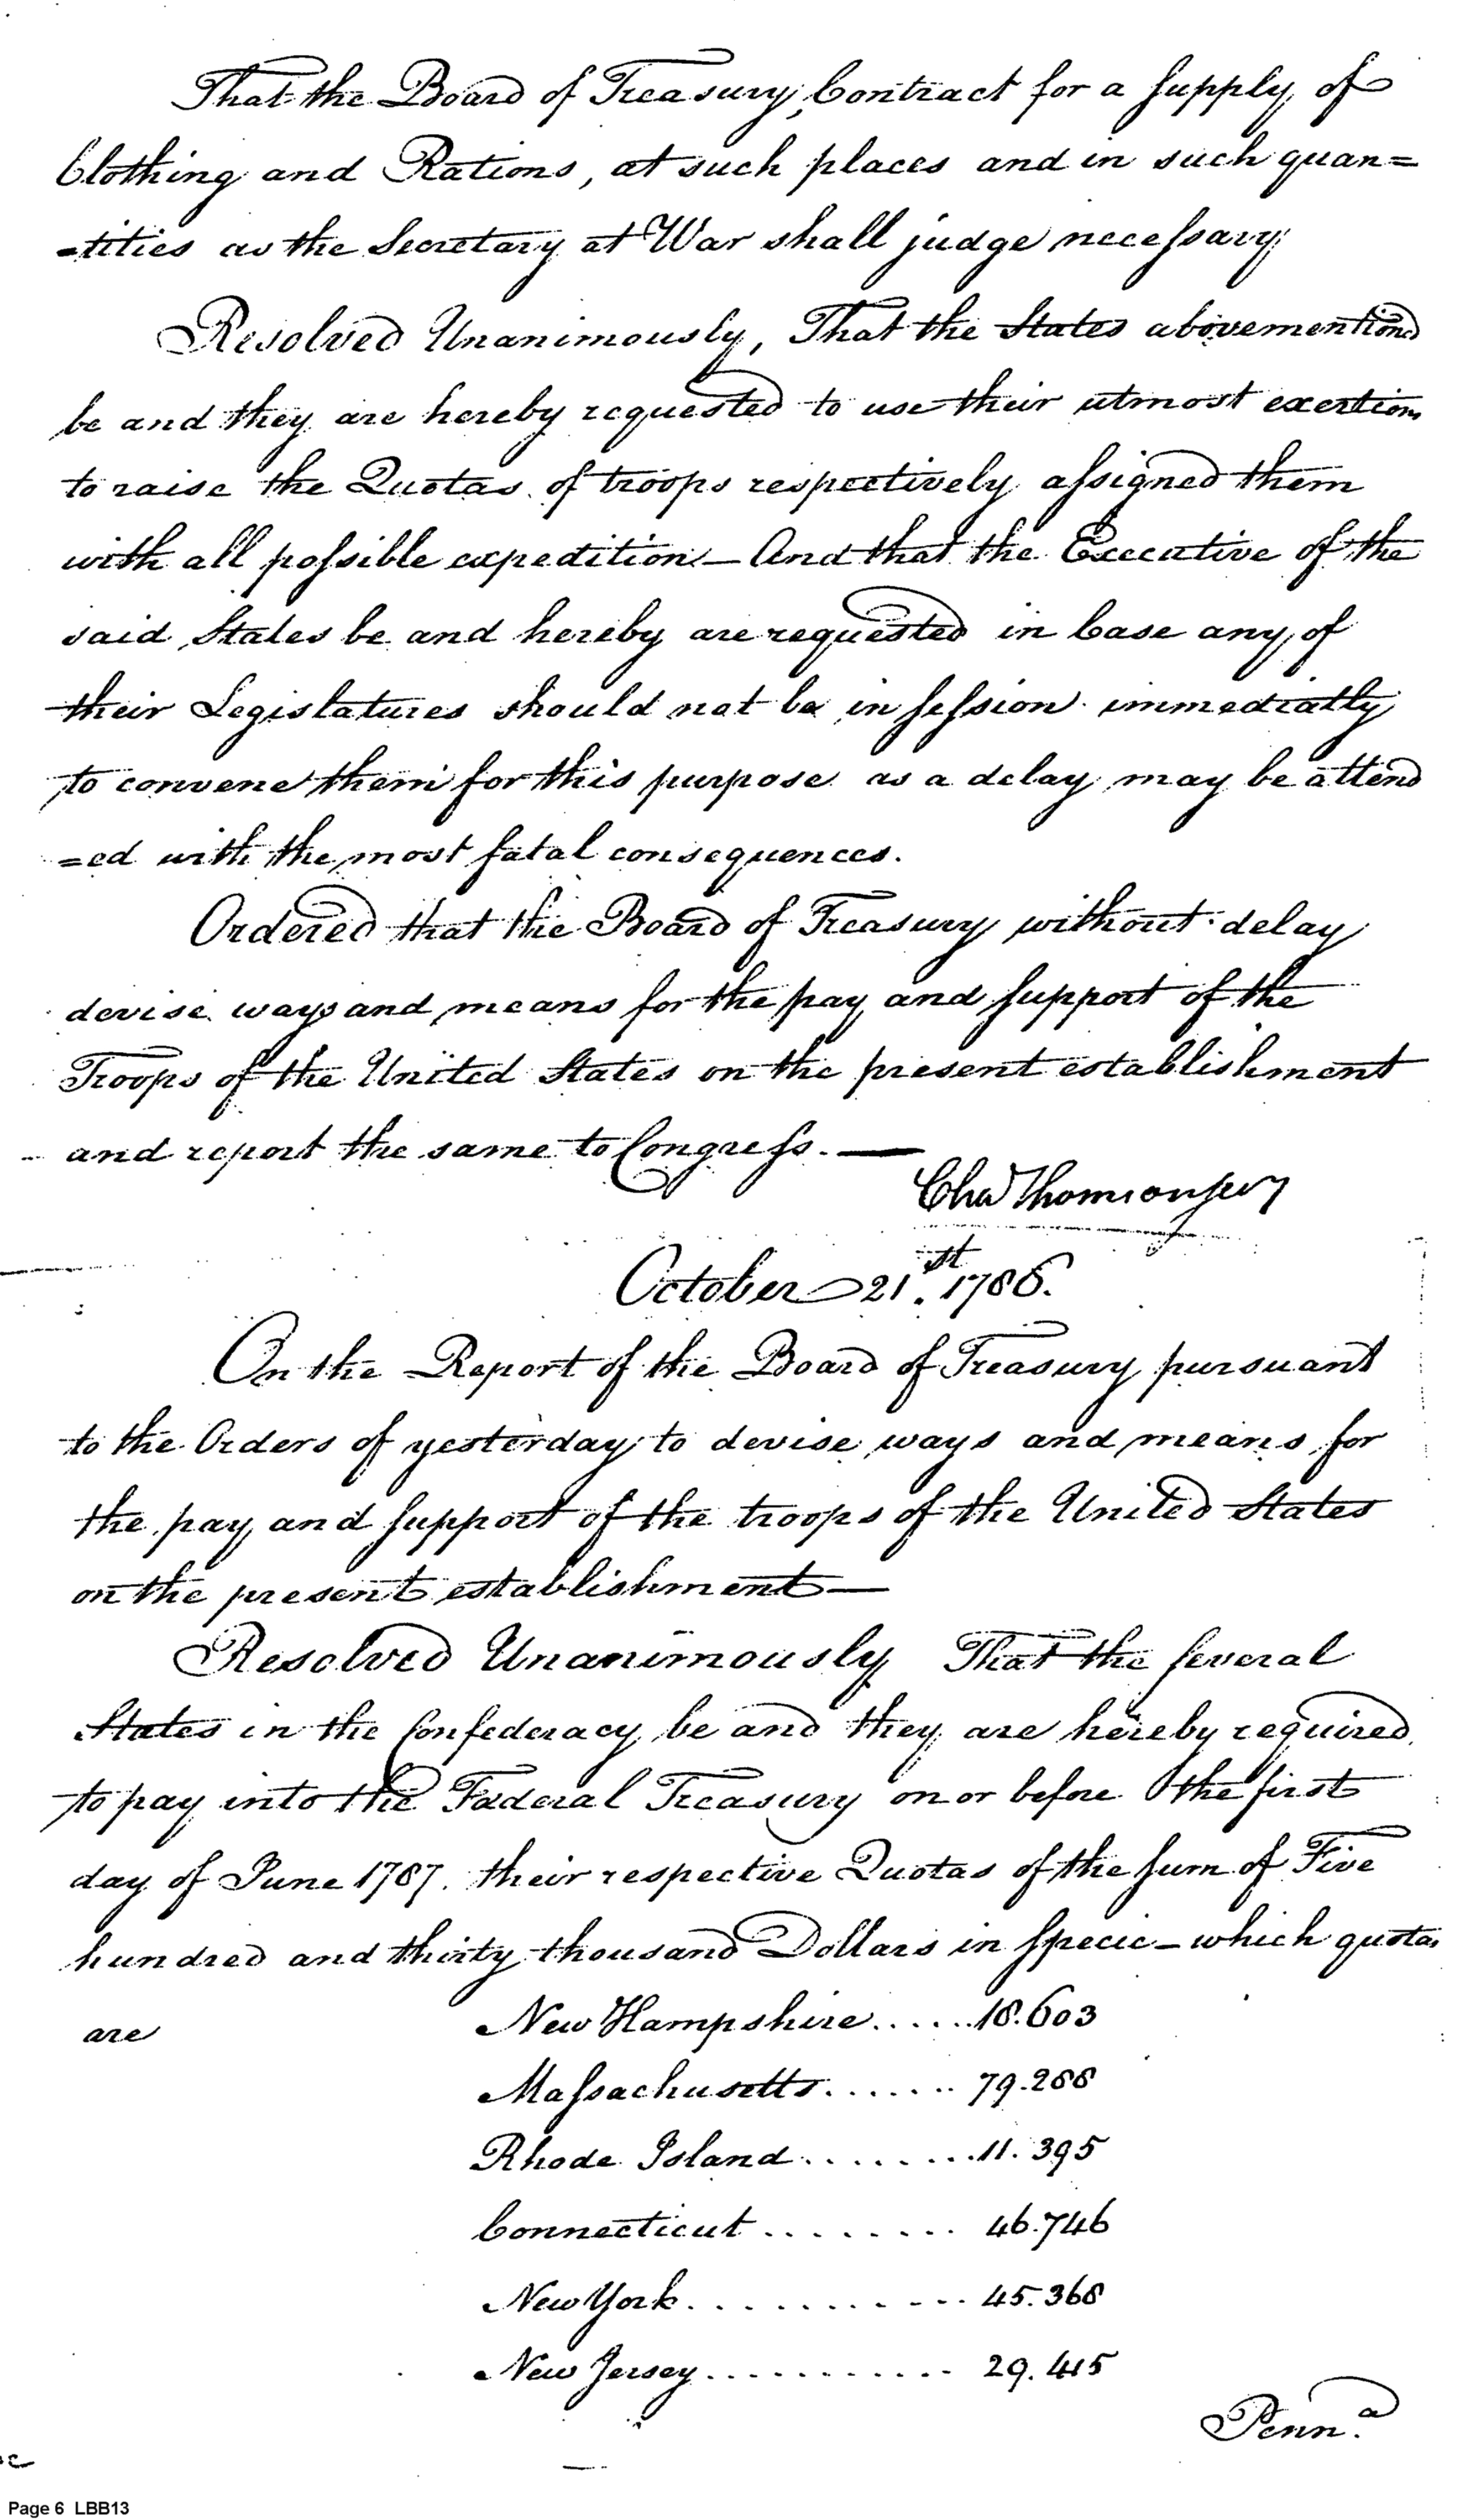 That the Board of Treasury, Contract for a supply of
Clothing and Rations, at such places and in such quan=
=tities as the Secretary at War shall judge necessary
Resolved Unanimously, That the States abovementioned
be and they are hereby requested to use their utmost exertions
to raise the Quotas of troops respectively assigned them
with all possible expedition — And that the Executive of the
said States be and hereby are requested in Case any of
their Legislatures should not be in session immediatly
to convene them for this purpose as a delay may be attend
=ed with the most fatal consequences.
Ordered that the Board of Treasury without delay
devise ways and means for the pay and support of the
Troops of the United States on the present establishment
and report the same to Congress. —
Cha Thomson Secy
October 21.st 1786.
On the Report of the Board of Treasury pursuant
to the Orders of yesterday to devise ways and means for
the pay and support of the troops of the United States
on the present establishment —
Resolved Unanimously That the several
States in the Confederacy be and they are hereby required
to pay into the Faderal Treasury on or before the first
day of June 1787. their respective Quotas of the sum of Five
hundred and thirty thousand Dollars in specie — which quotas
are New Hampshire ...... 18.603
Massachusetts ....... 79.288
Rhode Island ........ 11.395
Connecticut ........ 46.746
New York ........... 45.368
New Jersey ........... 29.415
Penn.a
Page 6 LBB13